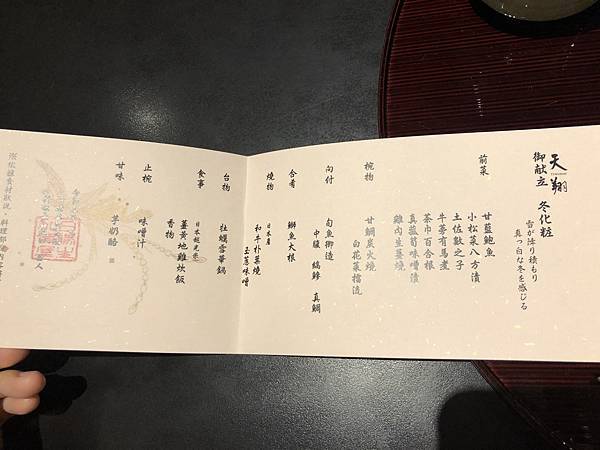 天翔
御献立 冬化粧
雪が降り積もり
真っ白な冬を感じる
前菜
甘藍鮑魚
小松菜八方漬
土佐数之子
牛蒡有馬煮
茶巾百合根
真菰筍味噌漬
雞肉生薑燒
椀物
甘鯛炭火燒
白花菜擂流
向付
旬魚御造
中腹 縞鰺 真鯛
合肴
鰤魚大根
燒物
日本產
和牛朴葉燒
玉蔥味噌
台物
牡蠣雪華鍋
食事
日本越光米
薑黃地雞炊飯
香物
止椀
味噌汁
甘味
羊奶酪